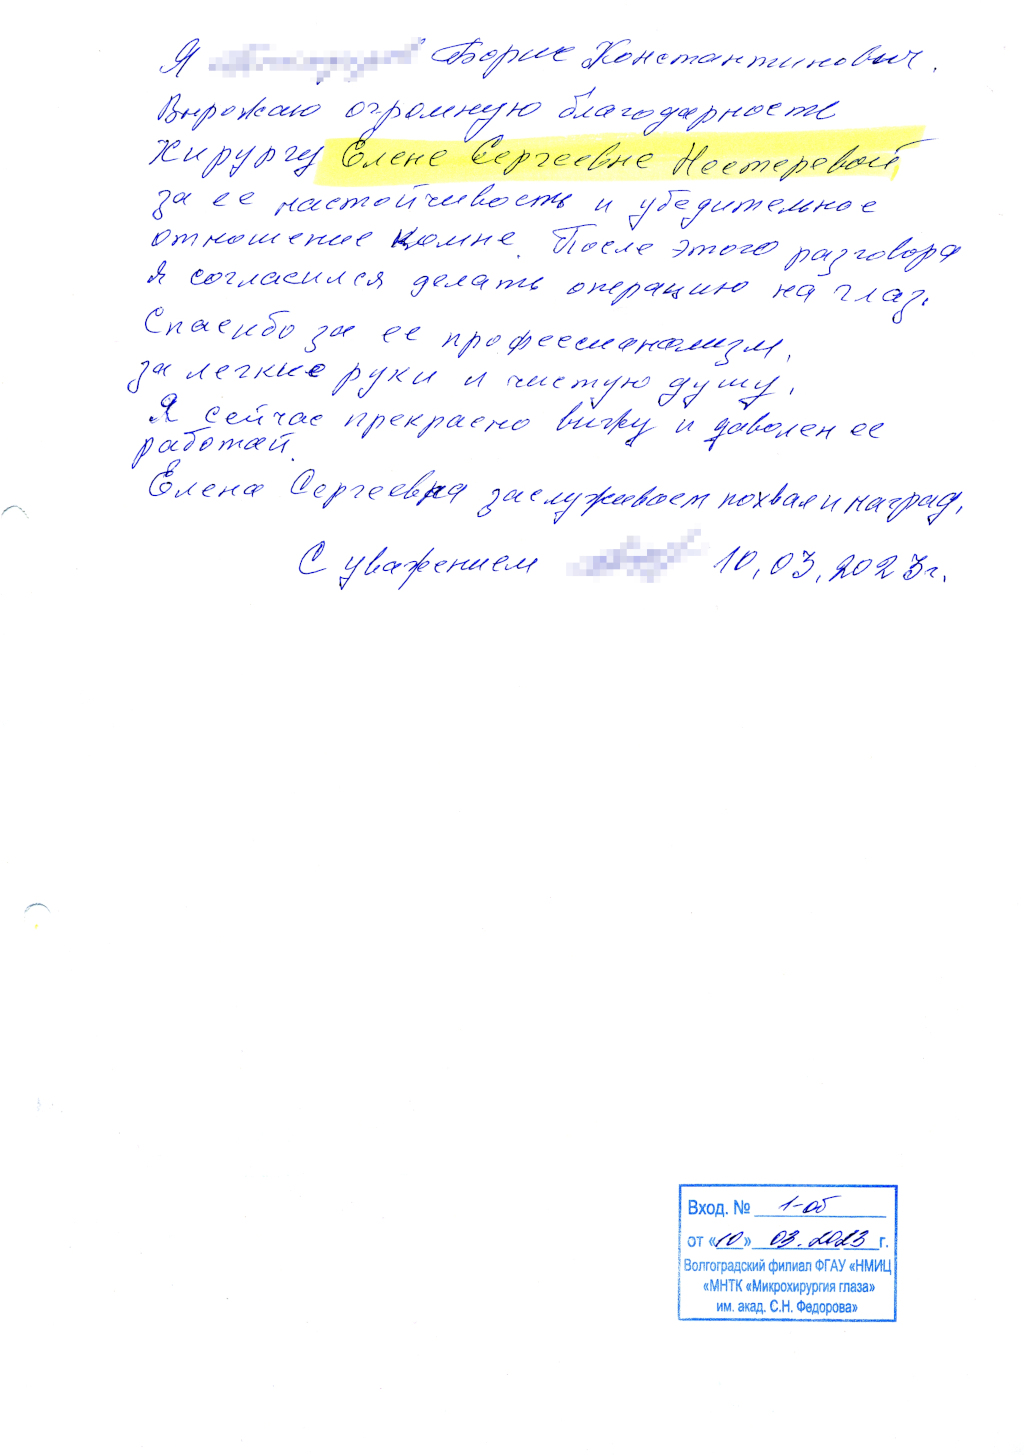 Я Борис Константинович.
Выражаю огромную благодарность
хирургу Елене Сергеевне Нестеревой
за ее настойчивость и убедительное
отношение комне. После этого разговора
я согласился делать операцию на глаз.
Спасибо за ее профессианализм,
за легкие руки и чистую душу.
Я сейчас прекрасно вижу и даволен ее
работай.
Елена Сергеевна заслуживает похвал и наград.
С уважением 10.03.2023г.
Вход. № 1-об
от «10» 03.2023г.
Волгоградский филиал ФГАУ «НМИЦ
«МНТК «Микрохирургия глаза»
им. акад. С.Н. Федорова»